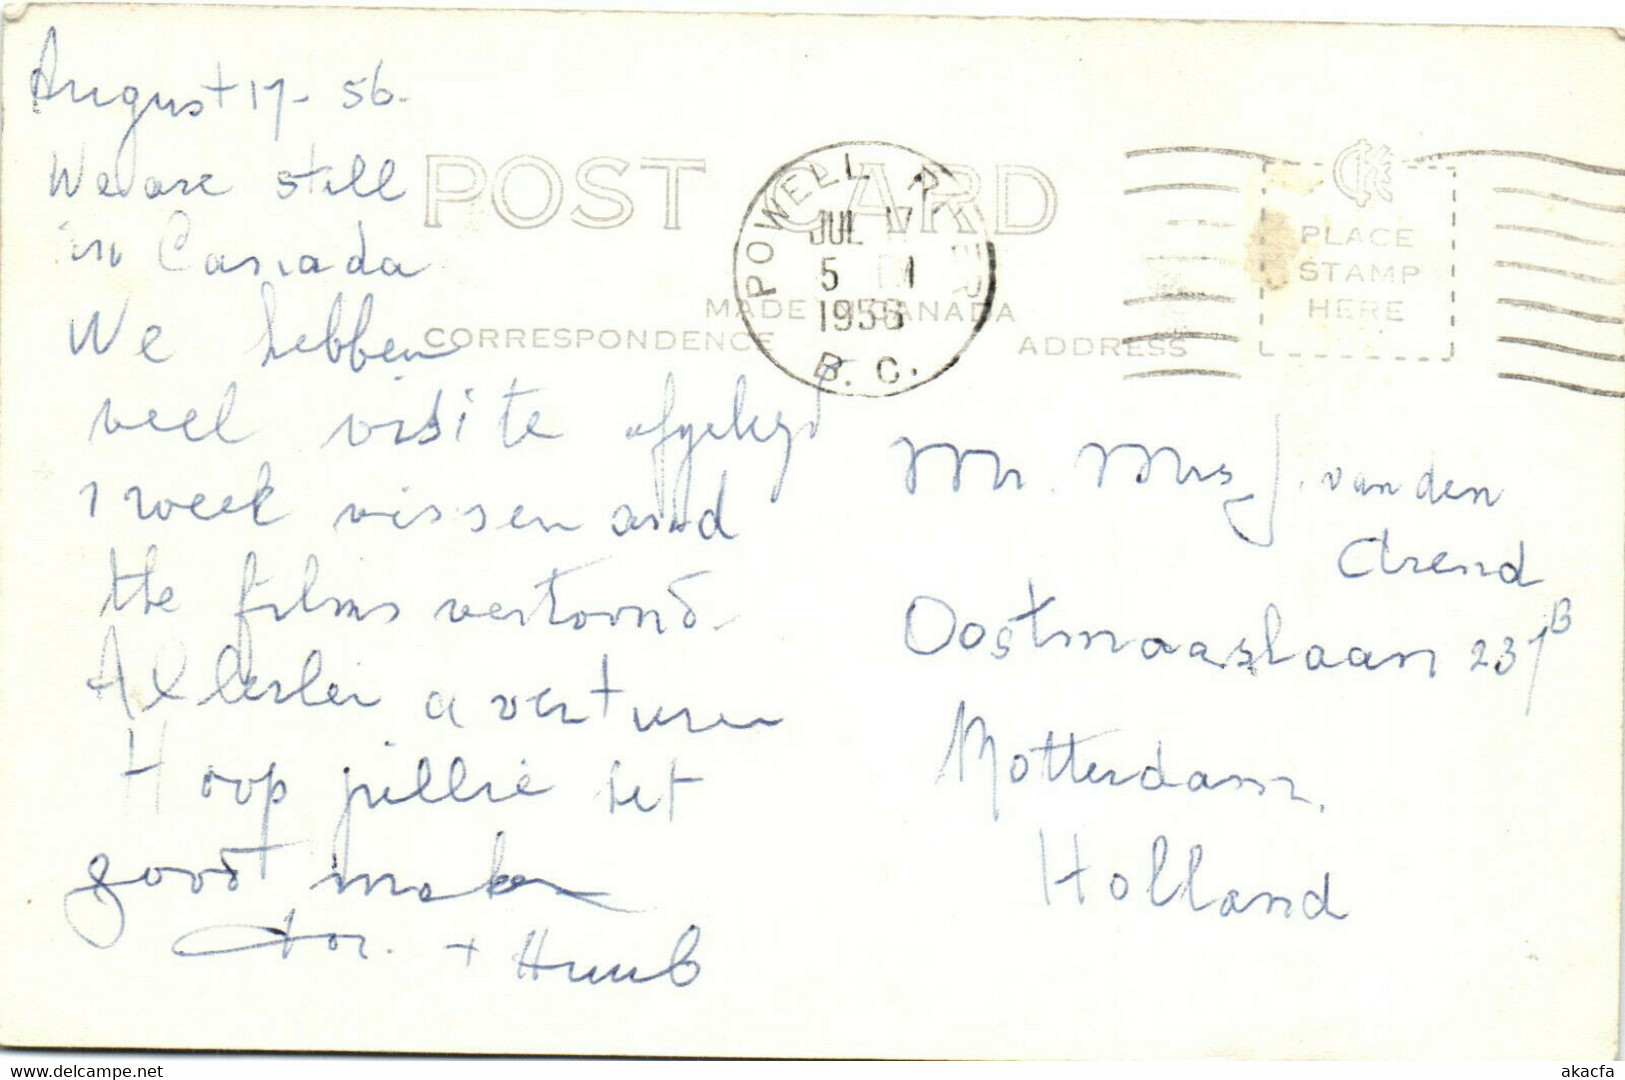 August 17 - 56.
We are still
in Canada
We hebben
veel visite afgelegd
1 week vissen and
the films vertoond.
Allerlei avonturen
Hoop jullie het
goed maken
+ Huub
POST CARD
MADE IN CANADA
CORRESPONDENCE
ADDRESS
POWELL RIVER
JUL 17
5 PM
1956
B.C.
CKC
PLACE
STAMP
HERE
Mr. Mrs J. van den
Arend
Oostmaaslaan 231B
Rotterdam.
Holland
akacfa